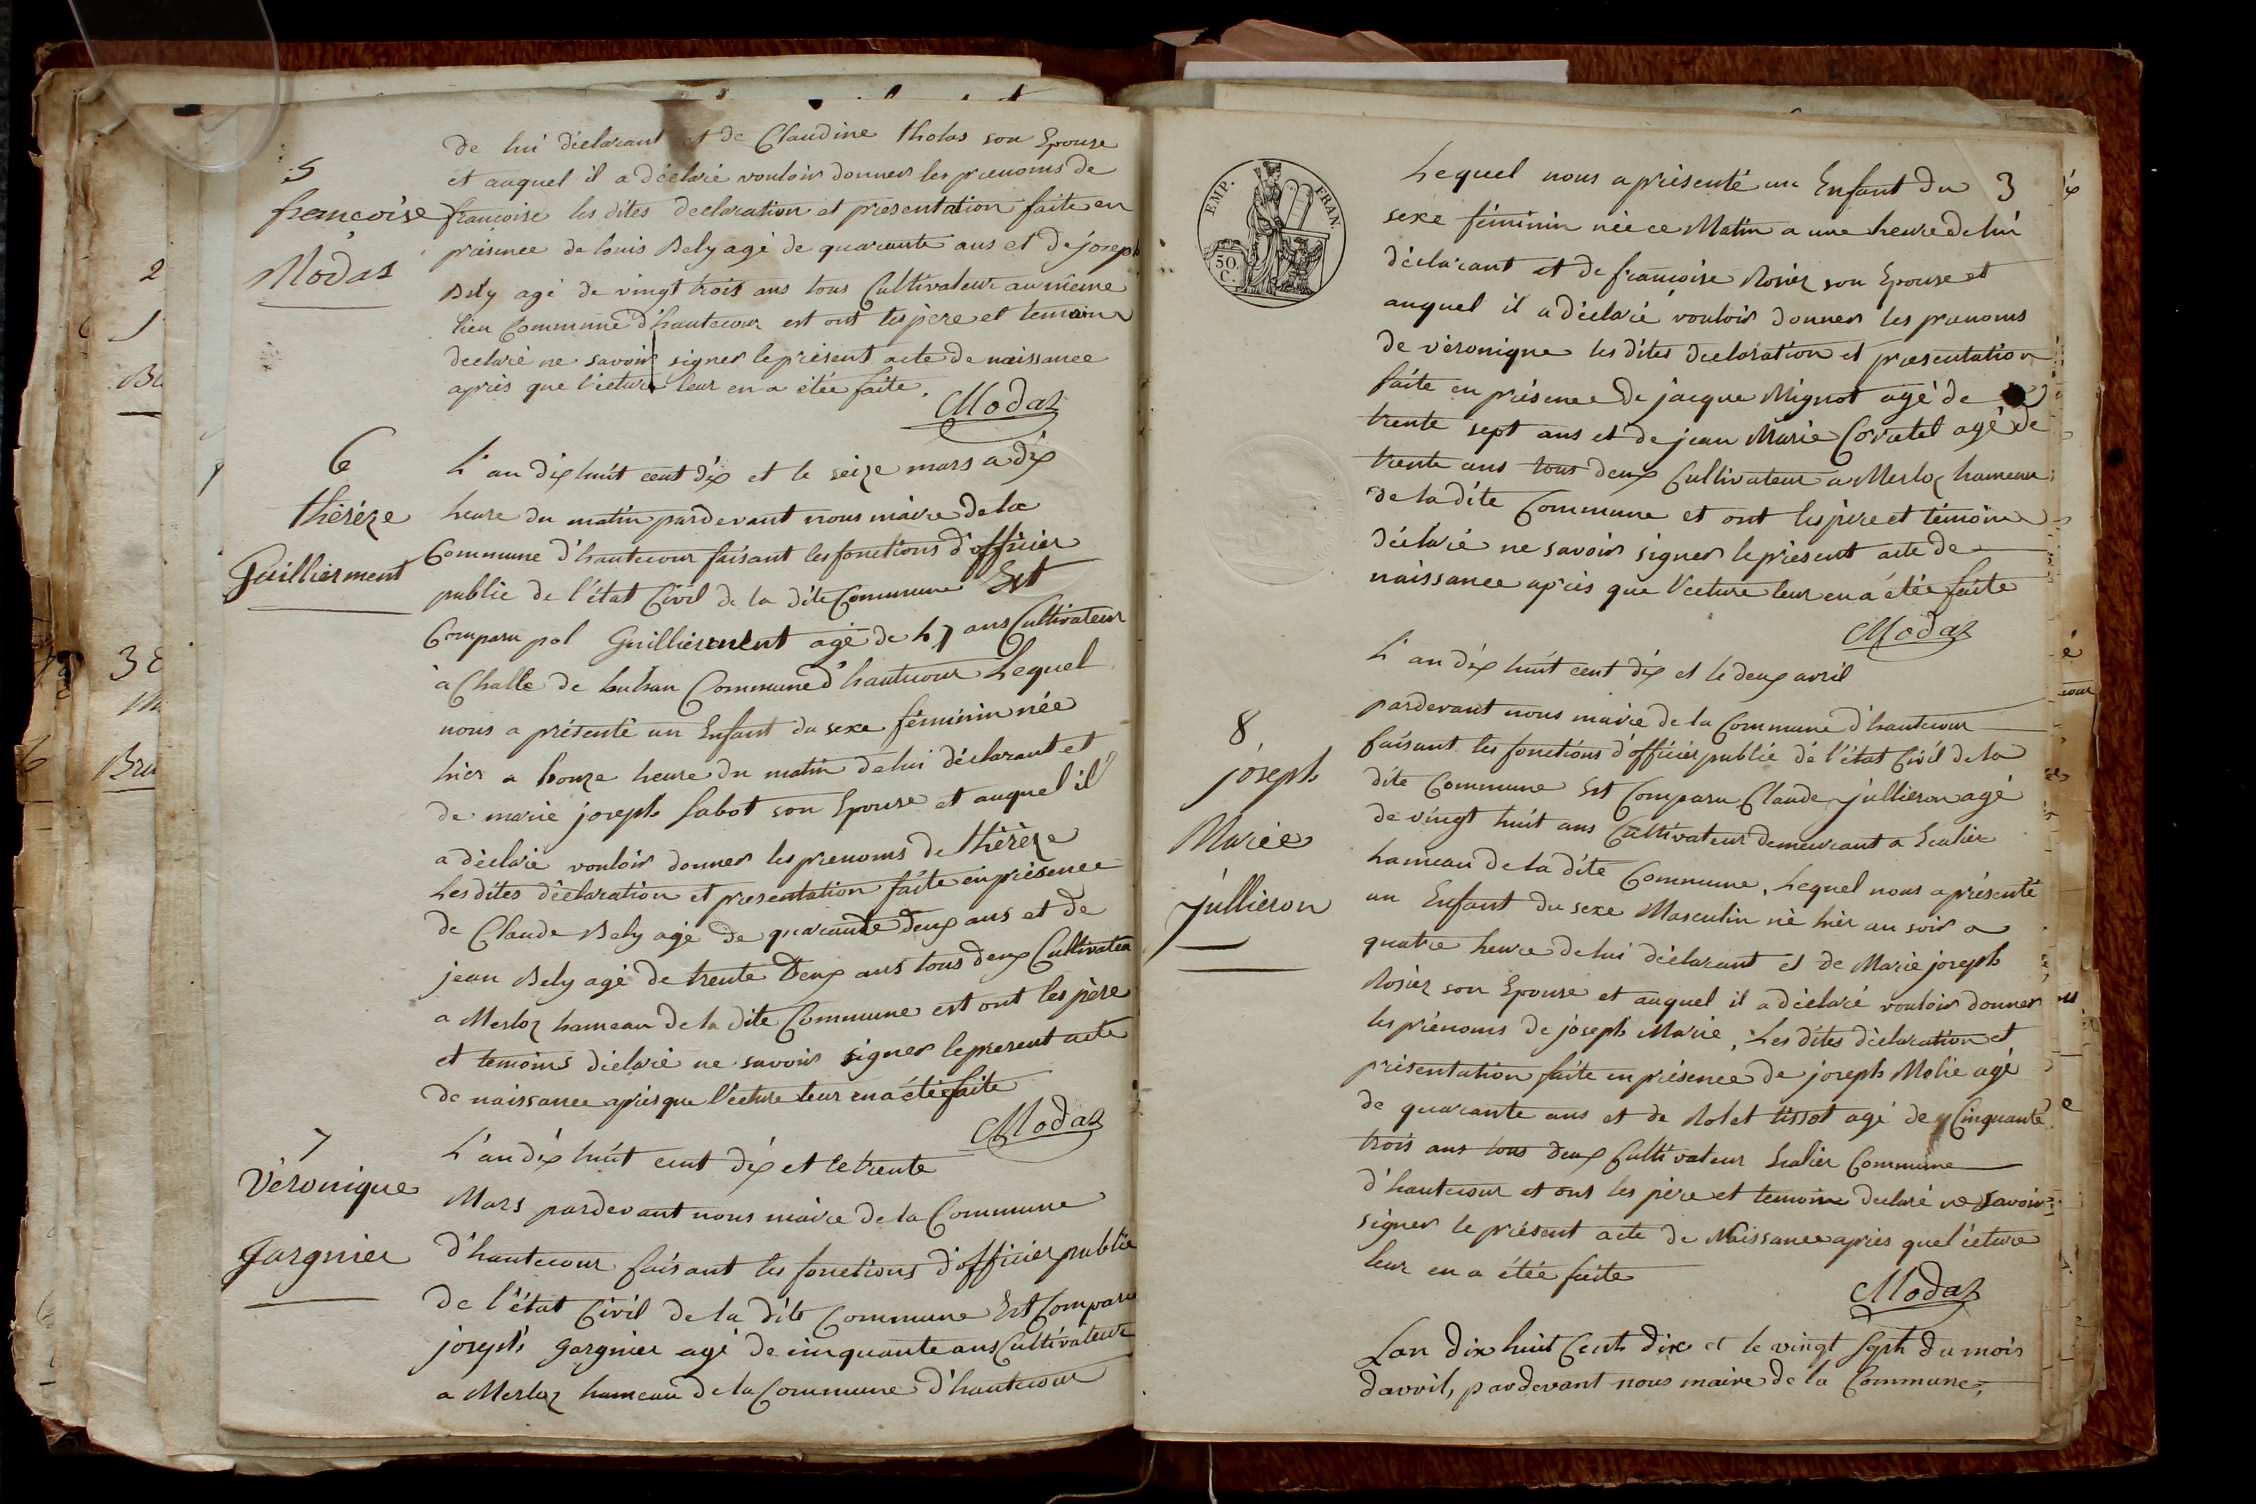 5
françoise
Modas
de lui déclarant et de Claudine tholas son Epouse
et auquel il a déclaré vouloir donner les prenoms de
françoise les dites declaration et presentation faite en
présence de louis Bely agé de quarante ans et de joseph
Bely agé de vingt trois ans tous Cultivateur au même
lieu Commune d'hautecour est ont les père et temoin
declaré ne savoir signer le présent acte de naissance
après que l'ecture leur en a étée faite.
Modas
6
thérèze
Guillierment
L'an dix huit cent dix et le seize mars a dix
heure du matin pardevant nous maire de la
Commune d'hautecour faisant les fonctions d'officier
public de l'état Civil de la dite Commune Est
Comparu pol Guillierment agé de 47 ans Cultivateur
à Challe de Commune d'hautecour Lequel
nous a présenté un Enfant du sexe féminin née
hier a honze heure du matin de lui déclarant et
de marie joseph sabot son Epouse et auquel il
a déclaré vouloir donner les prenoms de thérèze
Les dites déclaration et presentation faite en présence
de Claude Bely agé de quarante deux ans et de
jean Bely agé de trente deux ans tous deux Cultivateu
a Merloz hameau de la dite Commune est ont les père
et temoins déclaré ne savoir signer le present acte
de naissance après que l'ecture leur en a étée faite
Modas
7
Véronique
Gargnier
L'an dix huit cent dix et le trente
Mars pardevant nous maire de la Commune
d'hautecour faisant les fonctions d'officier public
de l'état Civil de la dite Commune Est Comparu
joseph gargnier agé de cinquante ans Cultivateur
a Merloz hameau de la Commune d'hautecour
EMP. FRAN.
50.
C.
3
Lequel nous a présenté un Enfant du
sexe féminin née ce Matin a une heure de lui
déclarant et de françoise Rosiez son Epouse et
auquel il a déclaré vouloir donner les prenoms
de véronique les dites declaration et presentation
faite en présence de jacque Mignot agé de
trente sept ans et de jean Marie Coratel agé de
trente ans tous deux Cultivateur a Merloz hameau
de la dite Commune et ont les père et témoin
déclaré ne savoir signer le présent acte de
naissance après que l'ecture leur en a étée faite
Modas
8
joseph
Marie
jullieron
L'an dix huit cent dix et le deux avril
pardevant nous maire de la Commune d'hautecour
faisant les fonctions d'officier public de l'état Civil de la
dite Commune Est Comparu Claude jullieron agé
de vingt huit ans Cultivateur demeurant a
hameau de la dite Commune, Lequel nous a présenté
un Enfant du sexe Masculin né hier au soir a
quatre heure de lui déclarant et de Marie joseph
Rosiez son Epouse et auquel il a déclaré vouloir donner
les prénoms de joseph Marie, Les dites déclaration et
présentation faite en présence de joseph Molie agé
de quarante ans et de Rolet tissot agé de Cinquante
trois ans tous deux Cultivateur Commune
d'hautecour et ont les père et temoin declaré ne savoir
signer le présent acte de Naissance après que l'ecture
leur en a étée faite
Modas
Lan dix huit Cent dix et le vingt Sept du mois
davril, pardevant nous maire de la Commune,